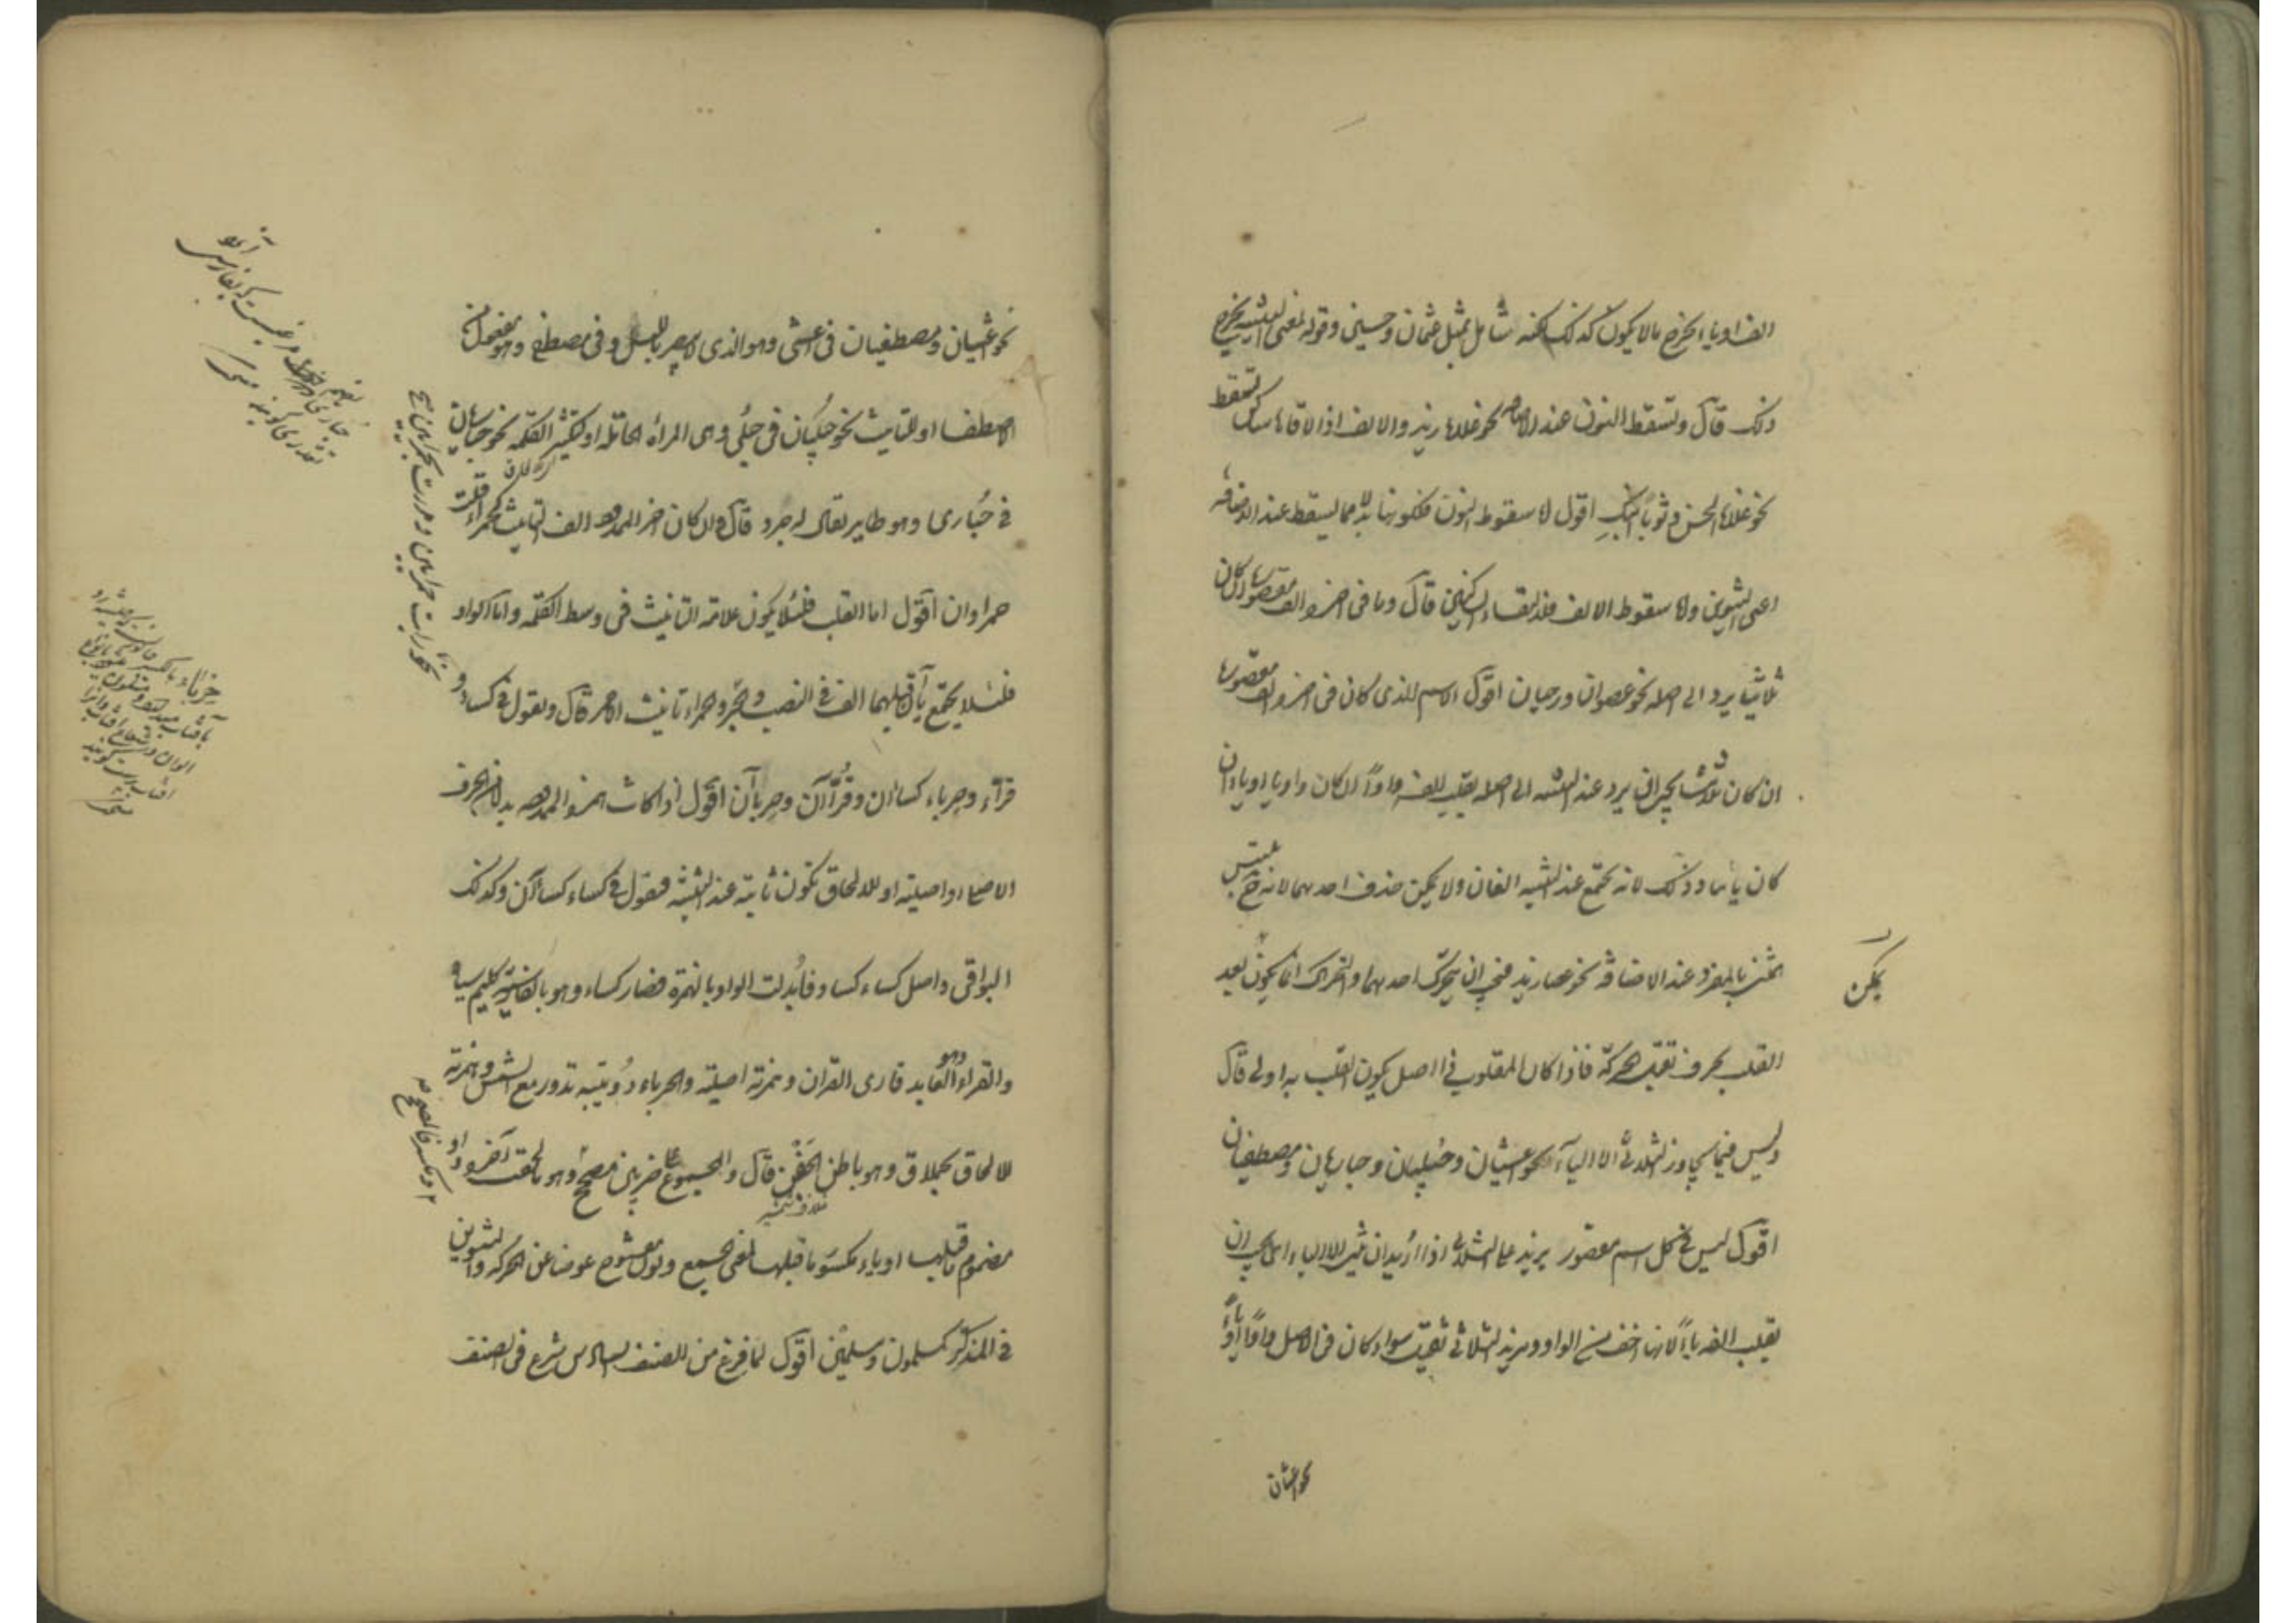 الف او ياء يخرج ما لا يكون كذلك لكنه شامل لمثل عثمان وحسين وقوله لمعنى التثنية يخرج
ذلك قال وتسقط النون عند الاضافة نحو غلاما زيد والالف اذا لاقاها ساكن
نحو غلاما الحسن وثوبا ابنك اقول اما سقوط النون فلكونها بدلا مما يسقط عند الاضافة
اعني التنوين واما سقوط الالف فلالتقاء الساكنين قال وما في اخره الف مقصورة ان كان
ثلاثيا يرد الى اصله نحو عصوان ورحيان اقول الاسم الذي كان في اخره الف مقصورة
ان كان ثلاثيا يجب ان يرد عند التثنية الى اصله بقلب الفه واوا ان كان واويا او ياء ان
كان يائيا وذلك لانه يجتمع عند التثنية الفان ولا يمكن حذف احديهما لانه ح يلتبس
المثنى بالمفرد عند الاضافة نحو عصا زيد فيجب ان يحرك احديهما والتحريك انما يكون بعد
يمكن
القلب بحرف تقبل الحركة فاذا كان المقلوب في الاصل يكون القلب به اولى قال
وليس فيما يجاوز الثلاثي الا الياء نحو اعشيان وحبليان وحباريان ومصطفيان
اقول ليس في كل اسم مقصور يزيد على الثلاثي اذا اريد ان يثنى الا الياء اي يجب ان
يقلب الفه ياء لانها اخف من الواو ومزيد الثلاثي ثقيل سواء كان في الاصل واوا او ياء
نحو اعشيان
نحو اعشيان ومصطفيان في اعشى وهو الذي لا يبصر بالليل وفي مصطفى وهو مفعول من
الاصطفاء او للتانيث نحو حبليان في حبلى وهي المرأة الحاملة او لتكثير الكلمة نحو حباريان
في حبارى وهو طاير يقال له جرد قال وان كان اخر الممدود الف التانيث كحمراء قلت
حمراوان اقول اما القلب فلئلا يكون علامة التانيث في وسط الكلمة واما الواو
فلئلا يجتمع يآن قبلهما الف في النصب والجر وحمراء تانيث الاحمر قال وتقول في كساء و
قراء وحرباء كساآن وقراآن وحرباآن اقول اذا كانت همزة الممدود بدلا من الحرف
الاصلي او اصلية او للالحاق تكون ثابتة عند التثنية فتقول في كساء كساآن وكذلك
البواقي واصل كساء كساو فابدلت الواو بالهمزة فصار كساء وهو بالفارسية گليم سياه
والقراء العابد وهو قارى القران وهمزته اصلية والحرباء دويبة تدور مع الشمس وهمزته
للالحاق بحملاق وهو باطن الجفن قال والمجموع على ضربين مصحح وهو ما لحقت اخره واو
مضموم ما قبلها او ياء مكسور ما قبلها لمعنى الجمع ونون مفتوح عوضا عن الحركة والتنوين
في المذكر كمسلمون ومسلمين اقول لما فرغ من الصنف السادس شرع في الصنف